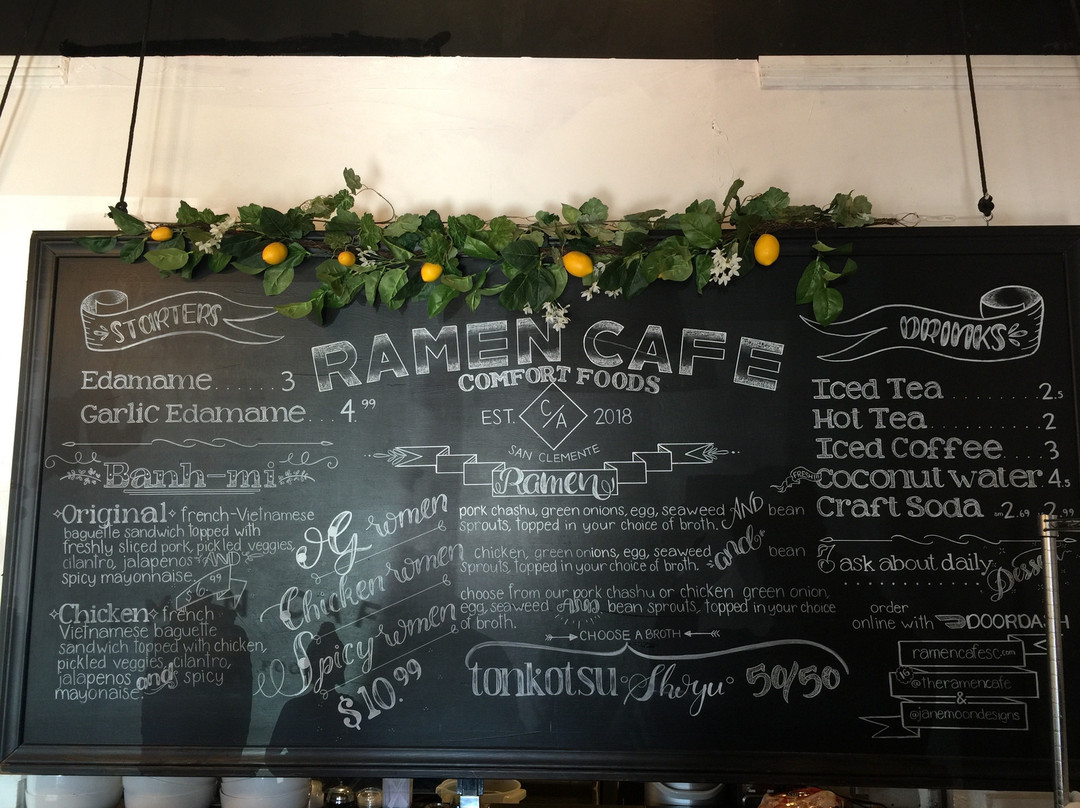 STARTERS
Edamame......3
Garlic Edamame...4.99
Banh-mi
Original french-Vietnamese
baguette sandwich topped with
freshly sliced pork, pickled veggies,
cilantro, jalapenos AND
spicy mayonnaise.
Chicken french
Vietnamese baguette
sandwich topped with chicken,
pickled veggies, cilantro,
jalapenos and spicy
mayonaise.
RAMEN CAFE
COMFORT FOODS
EST. C/A 2018
SAN CLEMENTE
Ramen
OG
pork chashu, green onions, egg, seaweed AND bean
sprouts, topped in your choice of broth.
Chicken
chicken, green onions, egg, seaweed and bean
sprouts, topped in your choice of broth.
Spicy
choose from our pork chashu or chicken green onion,
egg, seaweed AND bean sprouts, topped in your choice
of broth.
$10.99
CHOOSE A BROTH
tonkotsu Shoyu 50/50
DRINKS
Iced Tea..........2.5
Hot Tea..........2
Iced Coffee....3
FRESH Coconut water.4.5
Craft Soda 2.69 2.99
ask about daily
order
online with DOORDASH
ramencafesc.com
@theramencafe
&
@janemoondesigns